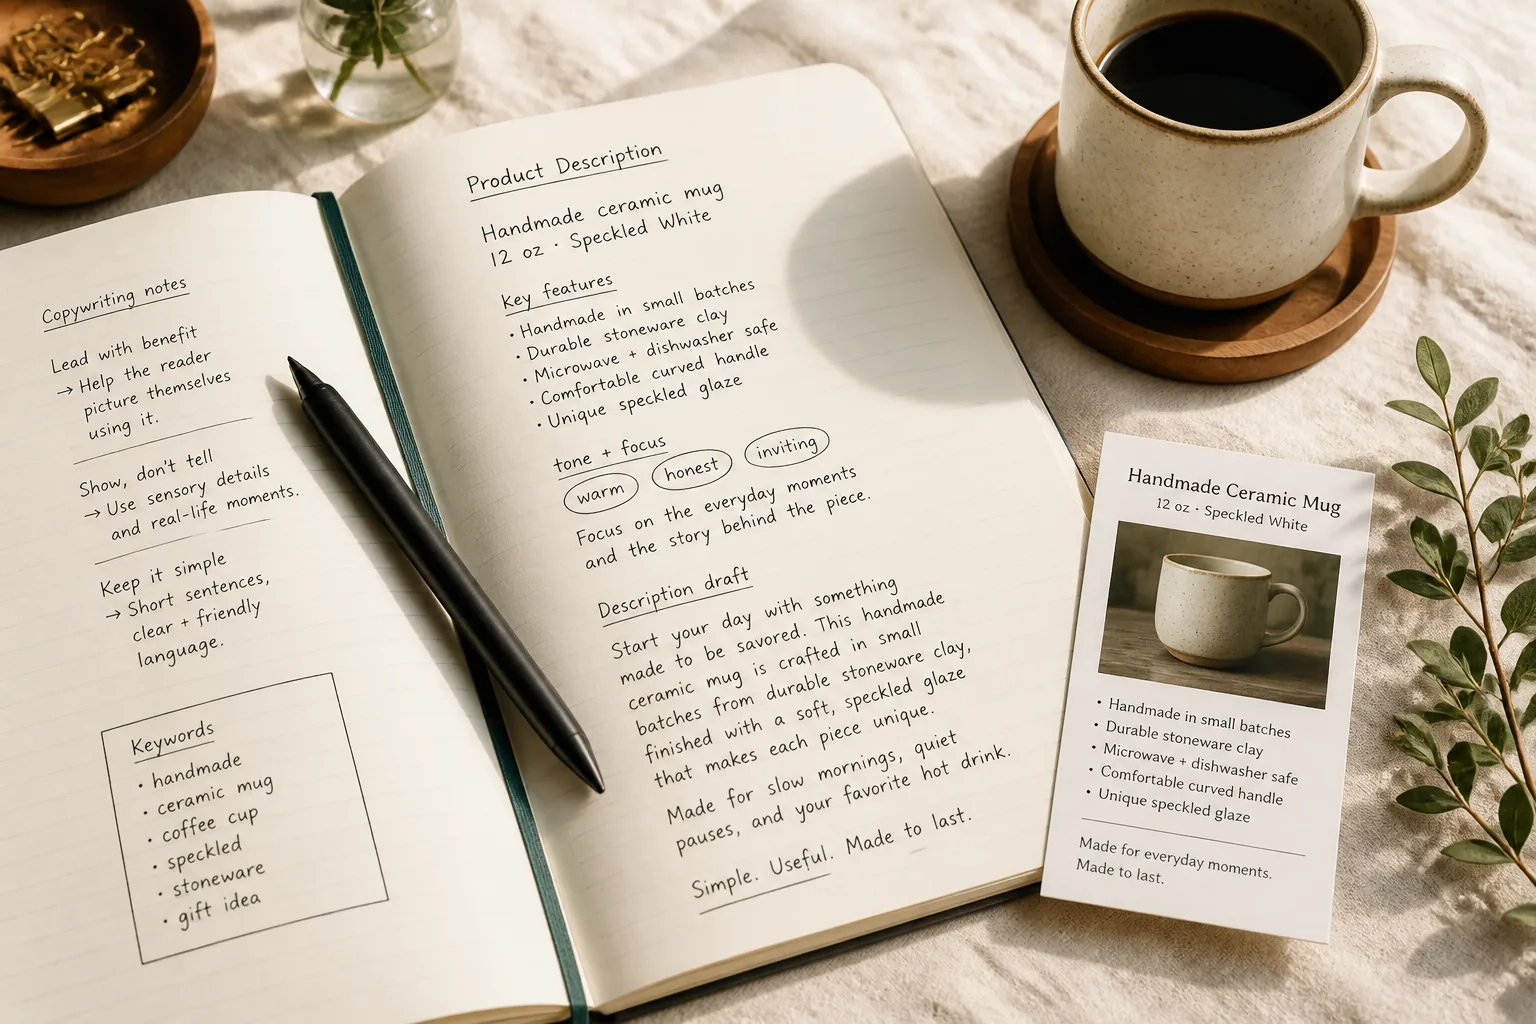 Copywriting notes
Lead with benefit
→ Help the reader
picture themselves
using it.
Show, don't tell
→ Use sensory details
and real-life moments.
Keep it simple
→ Short sentences,
clear + friendly
language.
Keywords
• handmade
• ceramic mug
• coffee cup
• speckled
• stoneware
• gift idea
Product Description
Handmade ceramic mug
12 oz · Speckled White
Key features
• Handmade in small batches
• Durable stoneware clay
• Microwave + dishwasher safe
• Comfortable curved handle
• Unique speckled glaze
tone + focus
warm honest inviting
Focus on the everyday moments
and the story behind the piece.
Description draft
Start your day with something
made to be savored. This handmade
ceramic mug is crafted in small
batches from durable stoneware clay,
finished with a soft, speckled glaze
that makes each piece unique.
Made for slow mornings, quiet
pauses, and your favorite hot drink.
Simple. Useful. Made to last.
Handmade Ceramic Mug
12 oz · Speckled White
• Handmade in small batches
• Durable stoneware clay
• Microwave + dishwasher safe
• Comfortable curved handle
• Unique speckled glaze
Made for everyday moments.
Made to last.